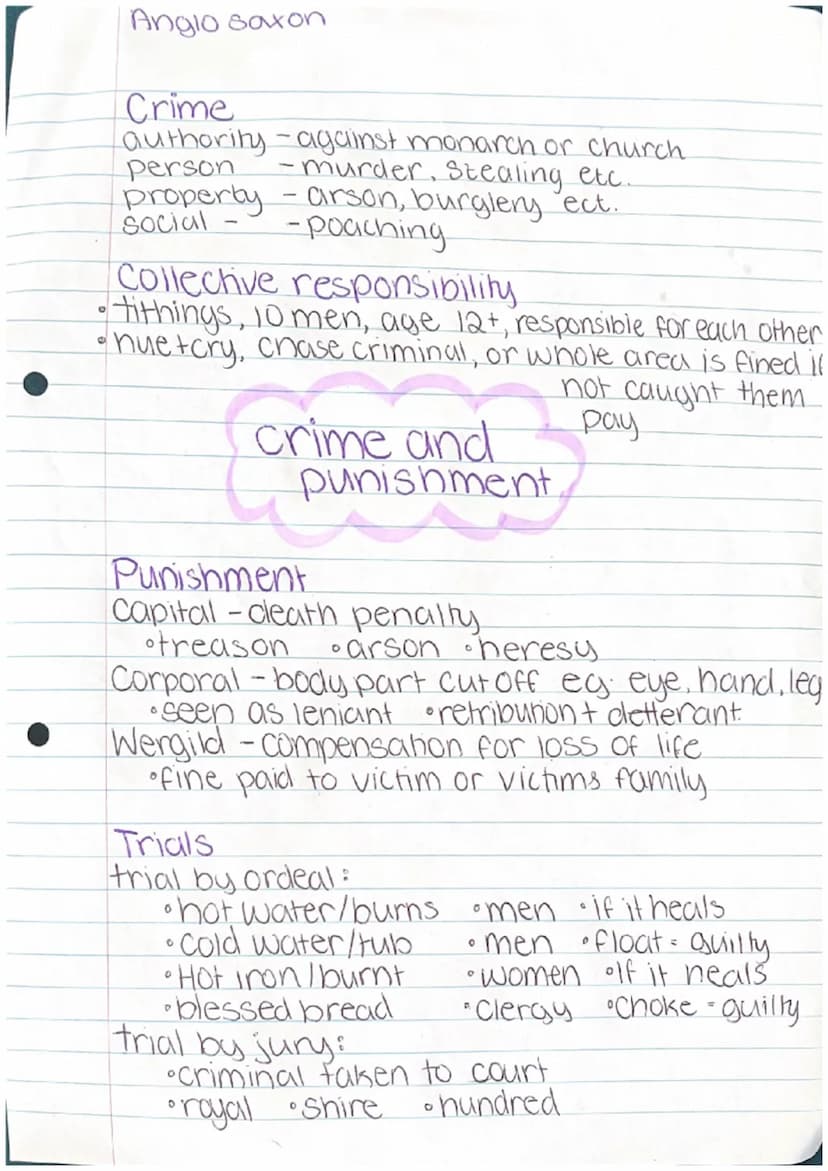 Anglo saxon
Crime
authority - against monarch or church
person - murder, stealing etc.
property - arson, burglery ect.
social - - poaching
Collective responsibility
• tithings, 10 men, age 12+, responsible for each other
• hue+cry, chase criminal, or whole area is fined if
not caught them
pay
crime and
punishment
Punishment
Capital - death penalty
• treason • arson • heresy
Corporal - body part cut off eg. eye, hand, leg
• seen as leniant • retribution + detterant
Wergild - compensation for loss of life
• fine paid to victim or victims family
Trials
trial by ordeal:
• hot water/burns • men • if it heals
• cold water/tub • men • float = guilty
• Hot iron/burnt • women • If it heals
• blessed bread • Clergy • Choke = guilty
trial by jury:
• criminal taken to court
• royal • shire • hundred